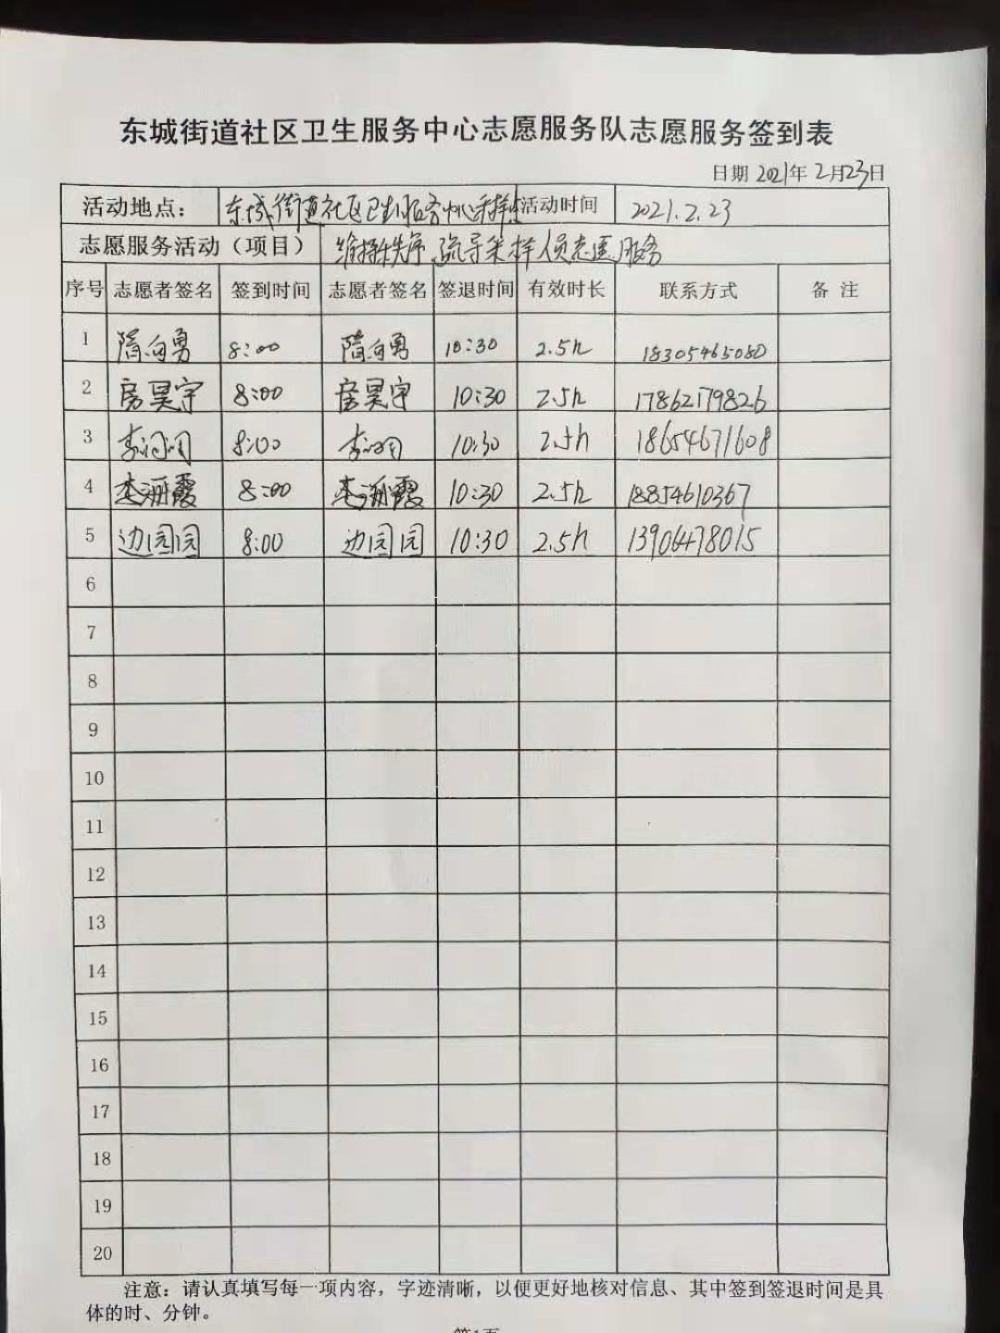 东城街道社区卫生服务中心志愿服务队志愿服务签到表
日期 2021年 2月23日
活动地点： 东城街道社区卫生服务中心采样点 活动时间 2021.2.23
志愿服务活动（项目） 维持秩序、疏导采样人员志愿服务
序号 志愿者签名 签到时间 志愿者签名 签退时间 有效时长 联系方式 备 注
1 隋向勇 8:00 隋向勇 10:30 2.5h 18305465080
2 房昊宇 8:00 房昊宇 10:30 2.5h 17862179826
3 8:00 10:30 2.5h 18654671608
4 李海霞 8:00 李海霞 10:30 2.5h 18854610367
5 边园园 8:00 边园园 10:30 2.5h 13906478015
6
7
8
9
10
11
12
13
14
15
16
17
18
19
20
注意：请认真填写每一项内容，字迹清晰，以便更好地核对信息、其中签到签退时间是具
体的时、分钟。
第1页